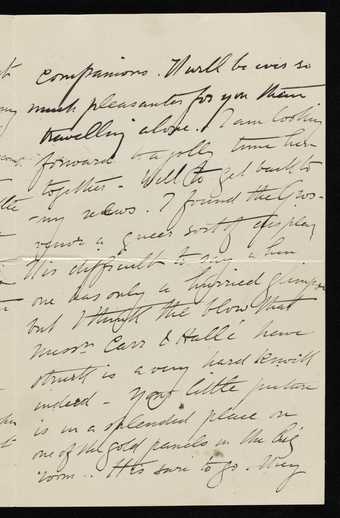 companions. It will be ever so
much pleasanter for you than
travelling alone. I am looking
forward to a jolly time here
together - Well to get back to
my news. I found the Gros-
venor a queer sort of display
It is difficult to say when
one has only a hurried glimpse
but I think the blow that
Messrs Carr & Hallé have
struck is a very hard
indeed - Your little picture
is in a splendid place on
one of the gold panels in the big
room.. It is sure to go. Very